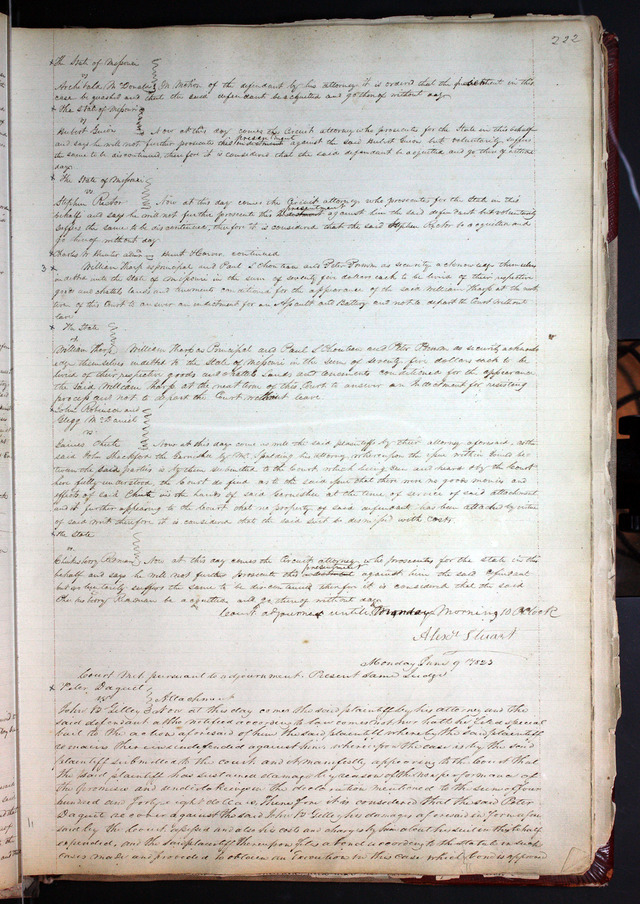 222
+ The State of Missouri
vs
Archibald McDonald } On Motion of the defendant by his attorney It is ordered that the in this
case be quashed and that the said defendant be acquitted and go thereof without day
+ The State of Missouri
vs
Hubert Guion } Now at this day comes the Circuit attorney who prosecutes for the State in this behalf
presentment
and says he will not further prosecute this indictment against the said Hubert Guion but voluntarily suffers
the same to be discontinued, therefore it is considered that the said defendant be acquitted and go thereof without
day
+ The State of Missouri
vs.
Stephen Rector } Now at this day comes the Circuit attorney who prosecutes for the State in this
presentment
behalf and says he will not further prosecute this indictment against him the said defendant but voluntarily
suffers the same to be discontinued, therefore it is considered that the said Stephen Rector be acquitted and
go thereof without day
+ W Hunter admr vs continued
3 + William Tharp as principal and Paul L Chouteau and Peter Primm as security acknowledge themselves
indebted unto the State of Missouri in the sum of seventy five dollars each to be levied of their respective
goods and chattels lands and tenements conditioned for the appearance of the said William Tharp at the next
term of this Court to answer an indictment for an Assault and Battery and not to depart the Court without
leave
+ The State
vs
William Tharp } William Tharp as Principal and Paul L Chouteau and Peter Primm as security acknowl
edge themselves indebted to the State of Missouri in the sum of seventy five dollars each to be
levied of their respective goods and chattels lands and tenements conditioned for the appearance
the said William Tharp at the next term of this Court to answer an Indictment for resisting
process and not to depart the Court without leave
John Robinson and
McDaniel
vs.
Chute } Now at this day come as well the said plaintiffs by their attorney aforesaid, as the
said John Shackford the Garnishee by Mr. Spalding his attorney, whereupon the issue within be
tween the said parties is by them submitted to the Court which being seen and heard and by the Court
here fully understood, the Court do find as to the said issue that there were no goods monies and
effects of said Chute in the hands of said Garnishee at the time of service of said attachment
and it further appearing to the Court that no property of said defendant has been attached by virtue
of said writ therefore it is considered that the said suit be dismissed with costs
+ The State
vs.
Roman } Now at this day comes the Circuit attorney who prosecutes for the state in this
presentment
behalf and says he will not further prosecute this indictment against him the said defendant
but voluntarily suffers the same to be discontinued therefore it is considered that the said
Roman be acquitted and go thereof without day
Court adjourned until Monday Morning 10 OClock
Alexr Stuart
Monday June 9th 1823
Court met pursuant to adjournment. Present same Judge
+ Peter Daguet
vs } Attachment
John W Gilley } Now at this day comes the said plaintiff by his attorney and the
said defendant altho notified according to law comes not nor hath he filed special
bail to the action aforesaid of him the said plaintiff whereby the said plaintiff
remains therein undefended against him whereupon the case is by the said
plaintiff submitted to the court and it manifestly appearing to the Court that
the said plaintiff has sustained damage by reason of the nonperformance of
the promises and undertakings in the declaration mentioned to the sum of four
hundred and forty eight dollars. Therefore it is considered that the said Peter
Daguet recover against the said John W Gilley his damages aforesaid in form afore
said by the Court assessed and also his costs and charges by him about his suit in this behalf
expended, and the said plaintiff thereupon files a bond according to the statute in such
cases made and provided to obtain an execution in this case which bond is approved